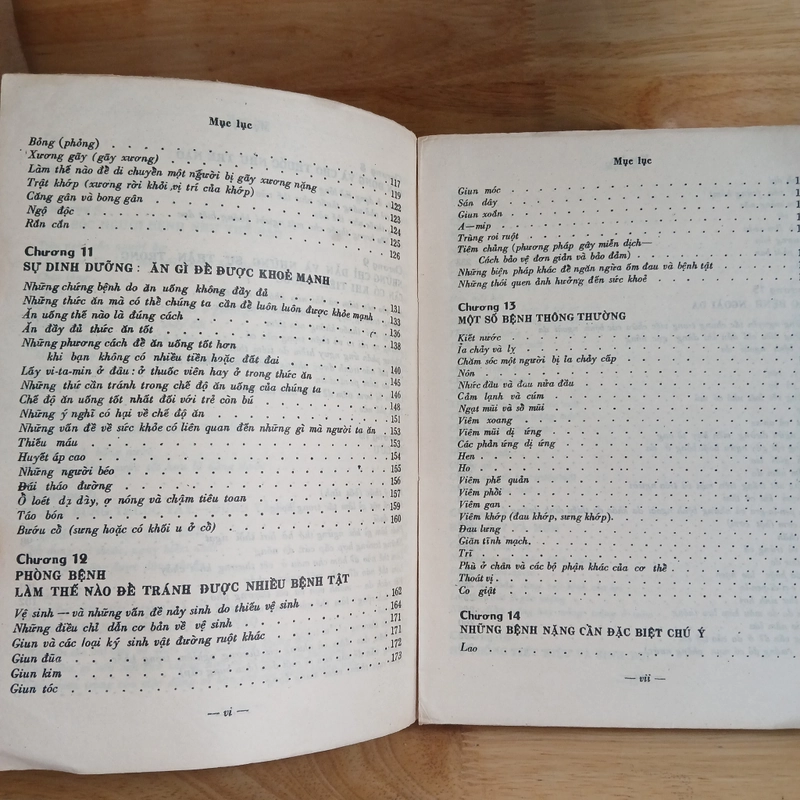 Mục lục
Bỏng (phỏng)
Xương gãy (gãy xương)
Làm thế nào để di chuyển một người bị gãy xương nặng 117
Trật khớp (xương rời khỏi vị trí của khớp) 119
Căng gân và bong gân 122
Ngộ độc 123
Rắn cắn 124
125
126
Chương 11
SỰ DINH DƯỠNG : ĂN GÌ ĐỂ ĐƯỢC KHOẺ MẠNH
Những chứng bệnh do ăn uống không đầy đủ 131
Những thức ăn mà cơ thể chúng ta cần để luôn luôn được khỏe mạnh 133
Ăn uống thế nào là đúng cách 136
Ăn đầy đủ thức ăn tốt 138
Những phương cách để ăn uống tốt hơn
khi bạn không có nhiều tiền hoặc đất đai
Lấy vi-ta-min ở đâu : ở thuốc viên hay ở trong thức ăn 140
Những thứ cần tránh trong chế độ ăn uống của chúng ta 145
Chế độ ăn uống tốt nhất đối với trẻ còn bú 146
Những ý nghĩ có hại về chế độ ăn 148
Những vấn đề về sức khỏe có liên quan đến những gì mà người ta ăn 151
Thiếu máu 153
Huyết áp cao 153
Những người béo 154
Đái tháo đường 155
Ổ loét dạ dày, ợ nóng và chậm tiêu toan 156
Táo bón 157
Bướu cổ (sưng hoặc có khối u ở cổ) 159
160
Chương 12
PHÒNG BỆNH
LÀM THẾ NÀO ĐỂ TRÁNH ĐƯỢC NHIỀU BỆNH TẬT
Vệ sinh — và những vấn đề nảy sinh do thiếu vệ sinh 162
Những điều chỉ dẫn cơ bản về vệ sinh 164
Giun và các loại ký sinh vật đường ruột khác 171
Giun đũa 171
Giun kim 172
Giun tóc 173
— vi —
Mục lục
Giun móc
Sán dây
Giun xoắn
A—míp
Trùng roi ruột
Tiêm chủng (phương pháp gây miễn dịch—
Cách bảo vệ đơn giản và bảo đảm)
Những biện pháp khác để ngăn ngừa ốm đau và bệnh tật
Những thói quen ảnh hưởng đến sức khoẻ
Chương 13
MỘT SỐ BỆNH THÔNG THƯỜNG
Kiết nước
Ỉa chảy và lỵ
Chăm sóc một người bị ỉa chảy cấp
Nôn
Nhức đầu và đau nửa đầu
Cảm lạnh và cúm
Ngạt mũi và sổ mũi
Viêm xoang
Viêm mũi dị ứng
Các phản ứng dị ứng
Hen
Ho
Viêm phế quản
Viêm phổi
Viêm gan
Viêm khớp (đau khớp, sưng khớp).
Đau lưng
Giãn tĩnh mạch,
Trĩ
Phù ở chân và các bộ phận khác của cơ thể
Thoát vị
Co giật
Chương 14
NHỮNG BỆNH NẶNG CẦN ĐẶC BIỆT CHÚ Ý
Lao
— vii —